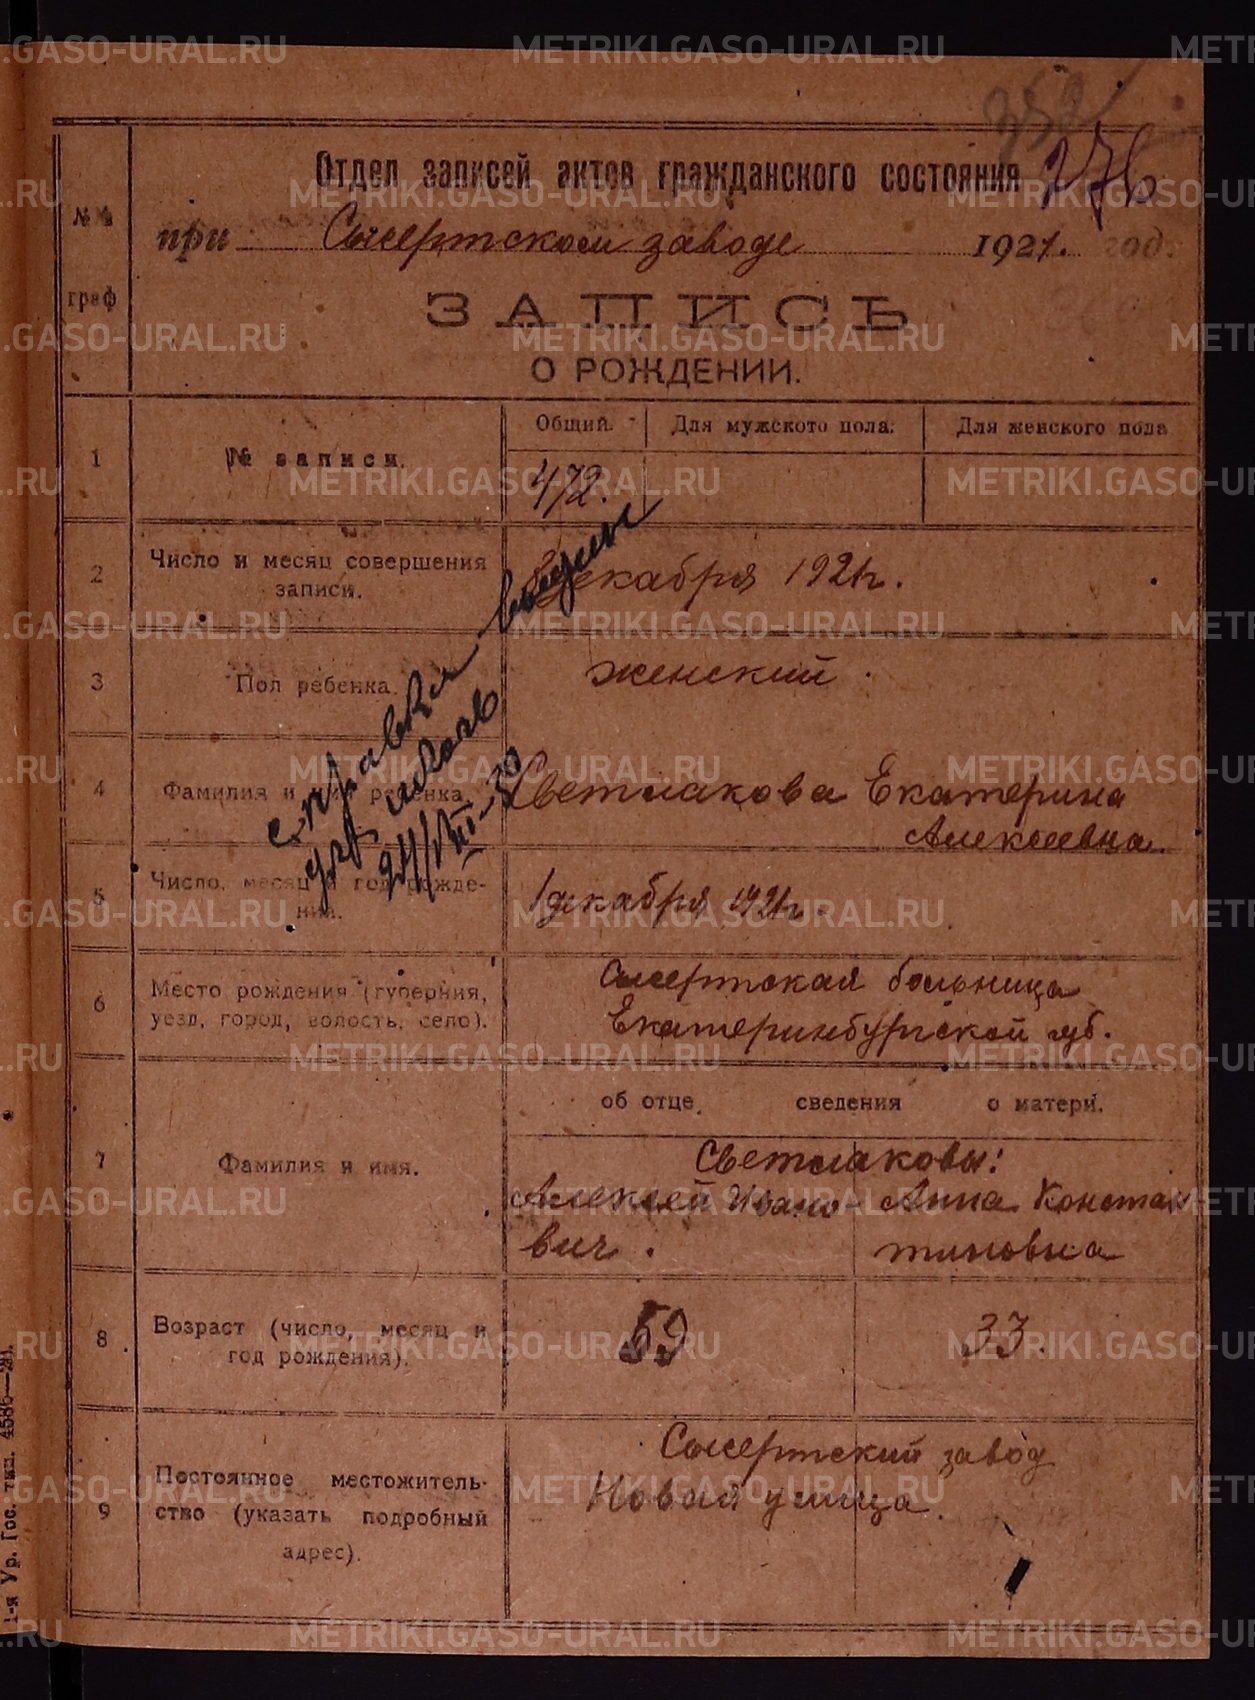 METRIKI.GASO-URAL.RU
276
Отдел записей актов гражданского состояния
при Сысертском заводе 1921. год.
№№ граф
ЗАПИСЬ
О РОЖДЕНИИ.
1 № записи. Общий. Для мужского пола. Для женского пола
472.
2 Число и месяц совершения записи. 8 декабря 1921г.
3 Пол ребенка. женский.
4 Фамилия и имя ребенка Светлакова Екатерина
Алексеевна.
5 Число, месяц и год рождения. 1 декабря 1921г.
справка
6 Место рождения (губерния,
уезд, город, волость, село).
Сысертская больница
Екатеринбургской губ.
об отце сведения о матери.
7 Фамилия и имя.
Светлаковы:
Алексей Ивано-
вич.
Анна Констан
тиновна
8 Возраст (число, месяц и
год рождения).
59 33.
9 Постоянное местожитель-
ство (указать подробный
адрес).
Сысертский завод
Новая улица.
1-я Ур. Гос. тип. 4586—21.